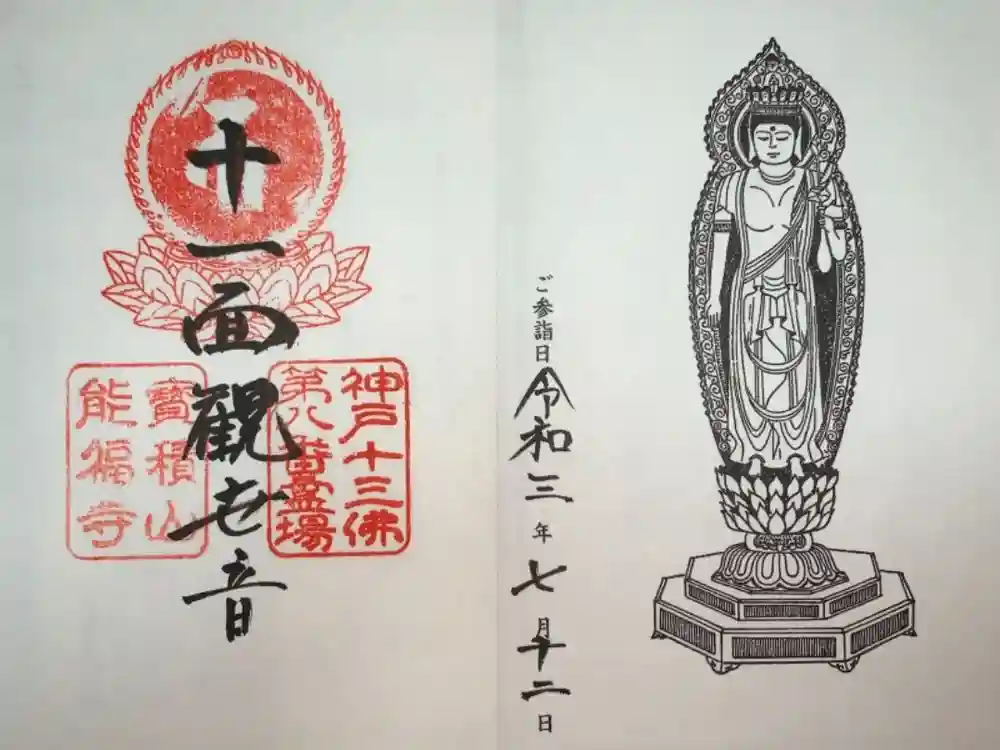 ご参詣日令和三年七月十二日
十一面觀世音
神戸十三佛
第八番霊場
寳積山
能福寺